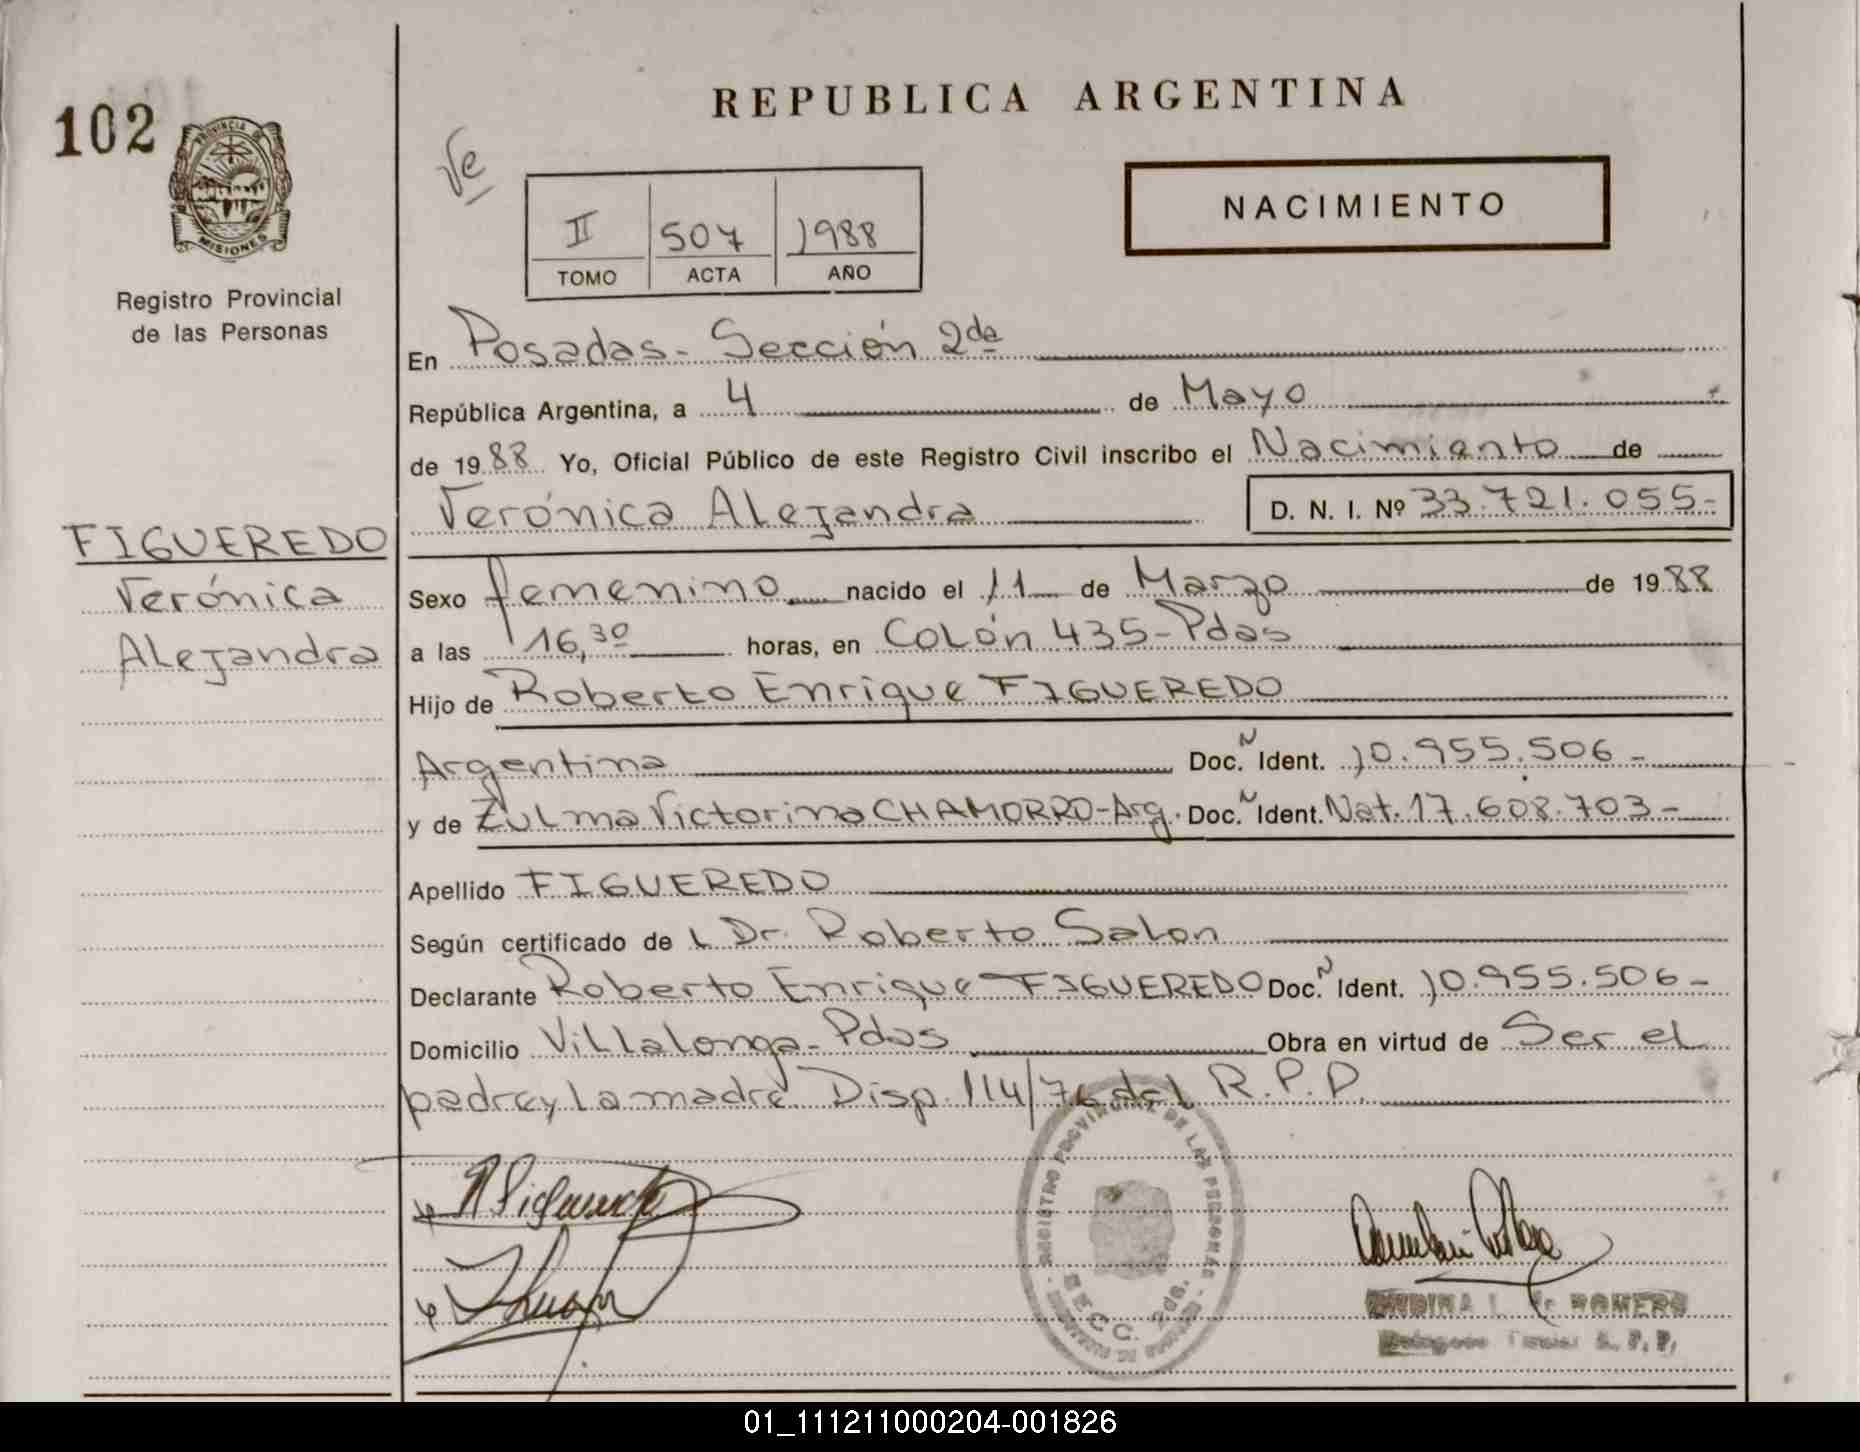 102
PROVINCIA DE
MISIONES
Registro Provincial
de las Personas
FIGUEREDO
Verónica
Alejandra
REPUBLICA ARGENTINA
Ve
II 507 1988
TOMO ACTA AÑO
NACIMIENTO
En Posadas - Sección 2da
República Argentina, a 4 de Mayo
de 1988 Yo, Oficial Público de este Registro Civil inscribo el Nacimiento de
Verónica Alejandra D. N. I. Nº 33.721.055-
Sexo femenino nacido el 11 de Marzo de 1988
a las 16,30 horas, en Colón 435-Pdas
Hijo de Roberto Enrique FIGUEREDO
Argentina Doc. N Ident. 10.955.506-
y de Zulma Victorina CHAMORRO-Arg. Doc. N Ident. Nat. 17.608.703-
Apellido FIGUEREDO
Según certificado de L Dr. Roberto Salon
Declarante Roberto Enrique FIGUEREDO Doc. N Ident. 10.955.506-
Domicilio Villalonga-Pdas Obra en virtud de Ser el
padre y la madre Disp. 114/76 del R.P.P.
REGISTRO PROVINCIAL DE LAS PERSONAS
SECC. 2da.
L. de ROMERO
R. P. P.
01_111211000204-001826